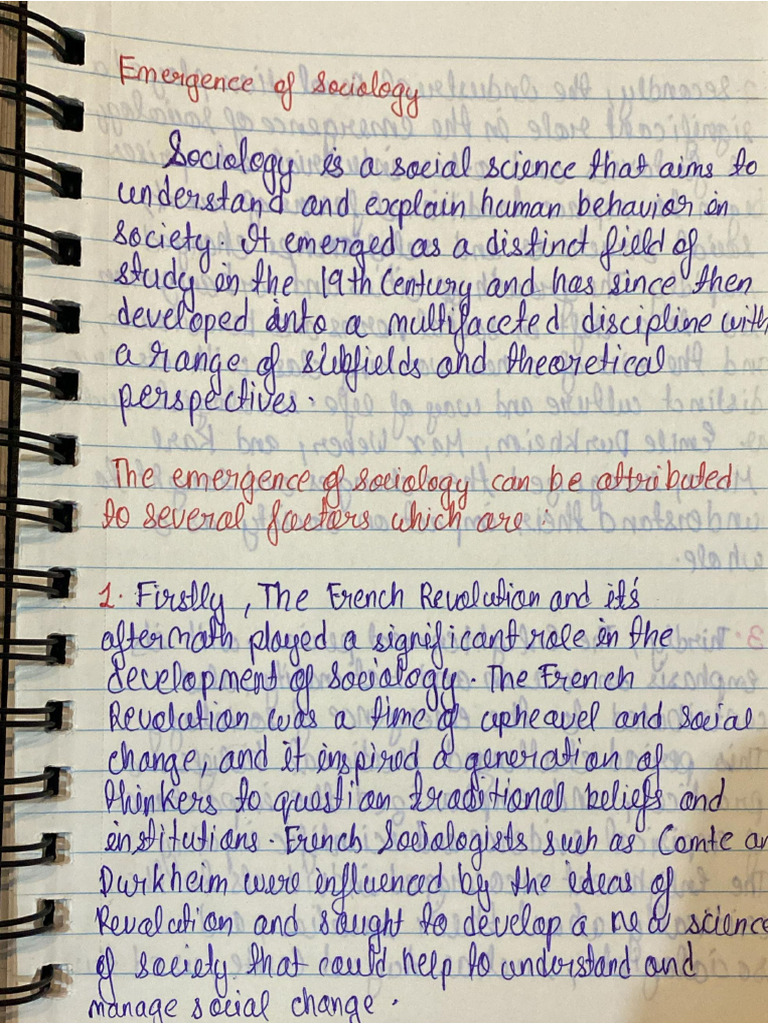 Emergence of Sociology
Sociology is a social science that aims to
understand and explain human behavior in
society. It emerged as a distinct field of
study in the 19th Century and has since then
developed into a multifaceted discipline with
a range of subfields and theoretical
perspectives.
The emergence of sociology can be attributed
to several factors which are :
1. Firstly, The French Revolution and it's
aftermath played a significant role in the
development of sociology. The French
Revolution was a time of upheavel and social
change, and it inspired a generation of
thinkers to question traditional beliefs and
institutions. French Sociologists such as Comte an
Durkheim were influenced by the ideas of
Revolution and sought to develop a new science
of society that could help to understand and
manage social change.